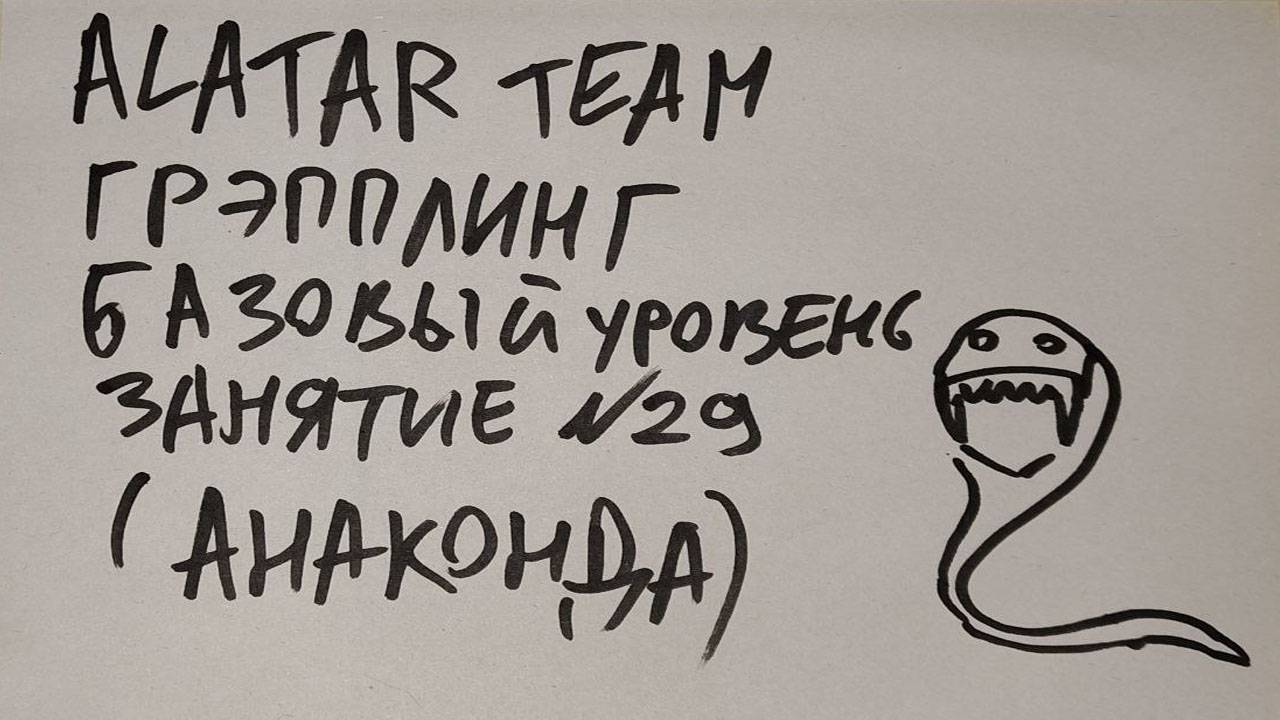 ALATAR TEAM
ГРЭППЛИНГ
БАЗОВЫЙ УРОВЕНЬ
ЗАНЯТИЕ №29
(АНАКОНДА)